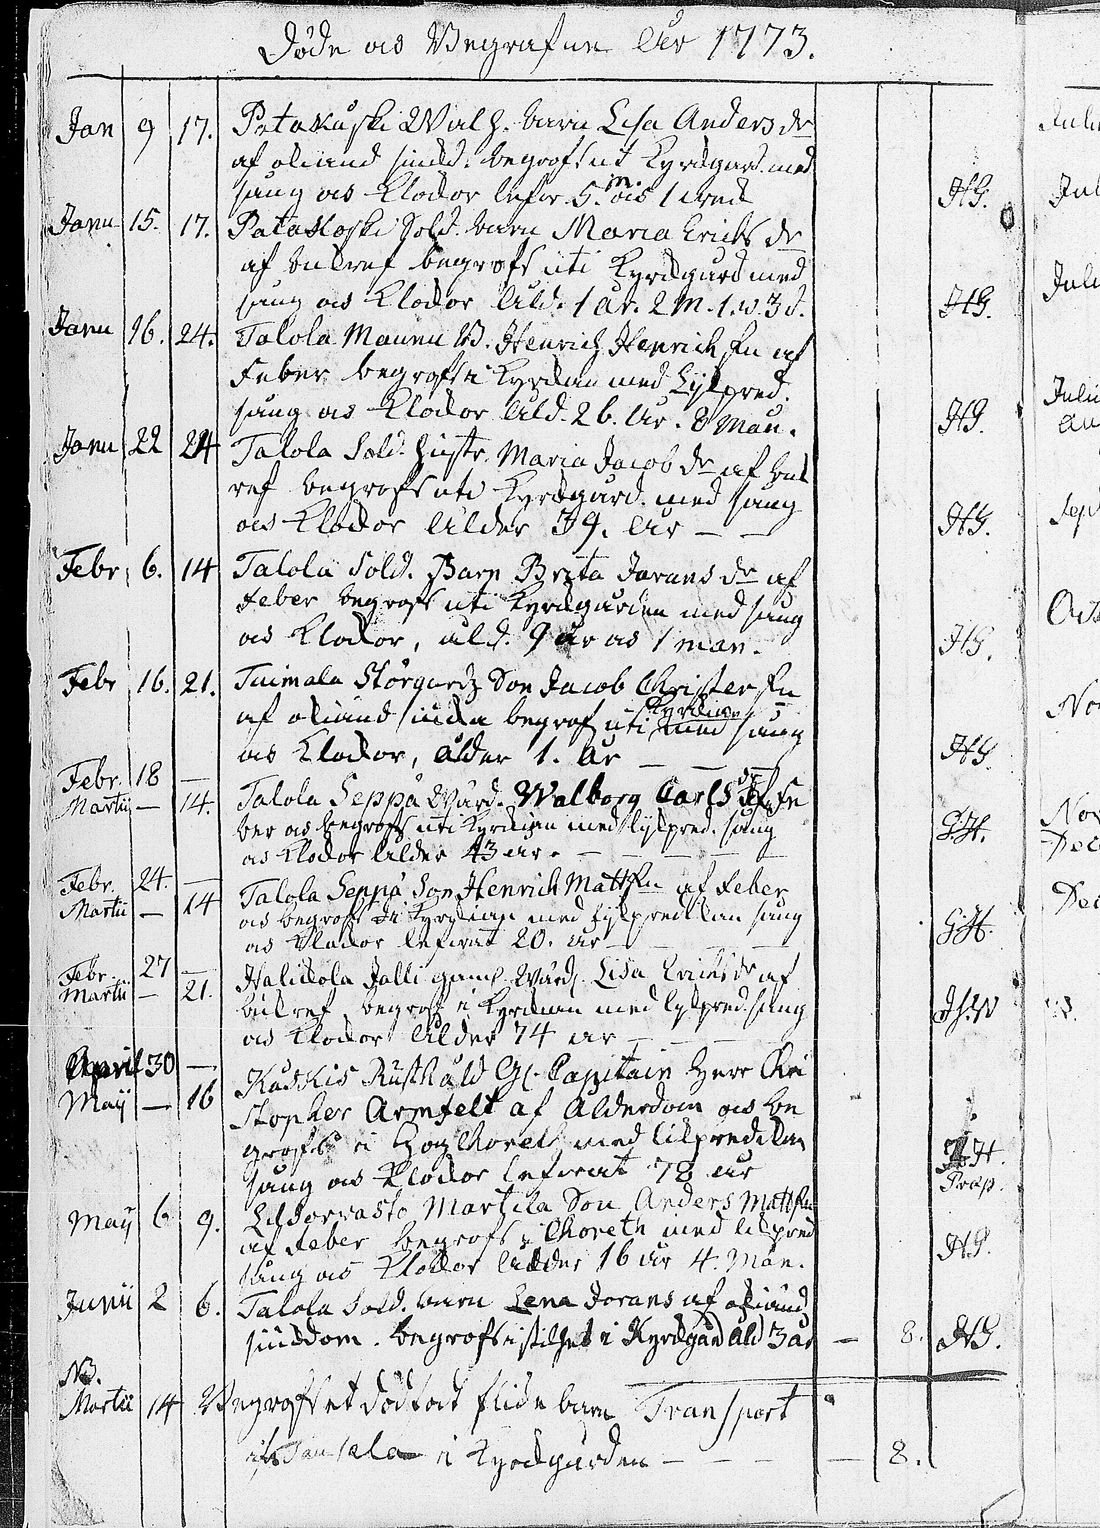 Döde och Begrafne Åhr 1773.
Jan 9 17. Patakåski Walh. barn Lisa Anders dr
af okänd siukd. begrofs ut Kyrckgård. med
sång och Klockor lefw. 5. m. och 1 wec HG.
Janu 15. 17. Patakoski Sold. barn Maria Erichs dr
af bulref begrofs uti Kyrckgård med
sång och Klockor Åld. 1 år. 2 M. 1. w. 3 d. HG.
Janu 16. 24. Talola Mannu B. Henrich Henrich Sn af
Feber begrofs i Kyrckan med Lijkpred.
sång och Klockor Åld. 26. År. 8 Mån. HG.
Janu 22 24 Talola Sold. hustr. Maria Jacob dr af bul
ref begrofs uti Kyrckgård. med sång
och Klockor Ålder 39. År HG.
Febr 6. 14 Talola Sold. Barn Brita Jörans dr af
Feber begrofs uti Kyrckgården med sång
och Klockor, åld. 9 år och 1 mån. HG.
Febr 16. 21. Tuimala Störgårdz Son Jacob Christer Sn
af okiänd siuka begrof. uti Kyrckan med sång
och Klockor, ålder 1. År HG.
Febr. 18 —
Martii — 14. Talola Seppä Wärd. Walborg Carls dr af Fe
ber och begrofs uti Kyrckan med lijkpred. sång
och Klockor Ålder 43 år. GH.
Febr. 24. —
Martii — 14 Talola Seppä Son Henrich Matts Sn af Feber
och begrofs i Kyrckan med lijkpredikan sång
och Klockor lefwat 20. år GH.
Febr. 27 —
Martii — 21. Halickola Jalli gaml. Wärd. Lisa Erichs dr af
bulref, begrofs i Kyrckan med lijkpred. sång
och Klockor Ålder 74 år
April 30 —
Maij — 16 Kåskis Rusthåld Gl. Capitain Herr Chri
stopher Armfelt af Ålderdom och be
grofs i Hög Choret med likpredikan
sång och Klockor lefwat 78 år HH.
Præp.
Maij 6 9. Martila Son Anders Matts Sn
af Feber begrofs i Choreth med likpred
sång och Klockor Ålder 16 år 4. Mån. HG.
Junii 2 6. Talola Sold. barn Lena Jörans af okiänd
siukdom. begrofs i stilhet i Kyrckgård åld 3 år — 8. HG.
NB.
Martii 14 Begrofs et dödfödt flicke barn Transport
i Kyrckgården — — — — 8.